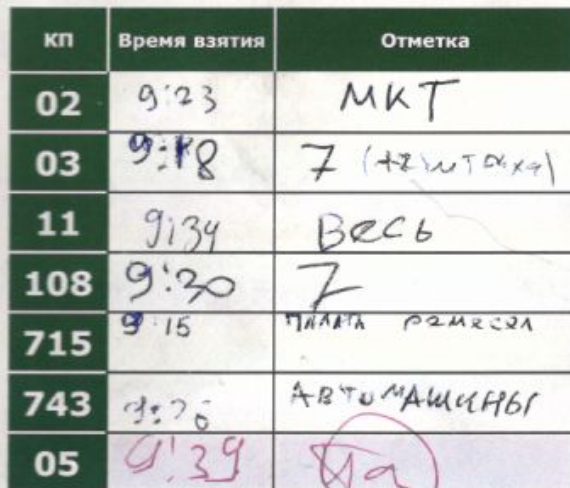 КП Время взятия Отметка
02 9:23 МКТ
03 9:18 7
11 9:34 Весь
108 9:30 7
715 9:15 ПАЛАТА РЕМЕСЕЛ
743 9:26 АВТОМАШИНЫ
05 9:39